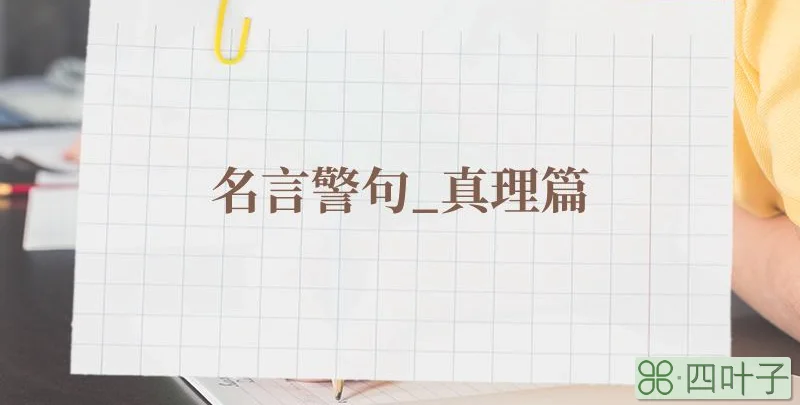 名言警句_真理篇
四叶子